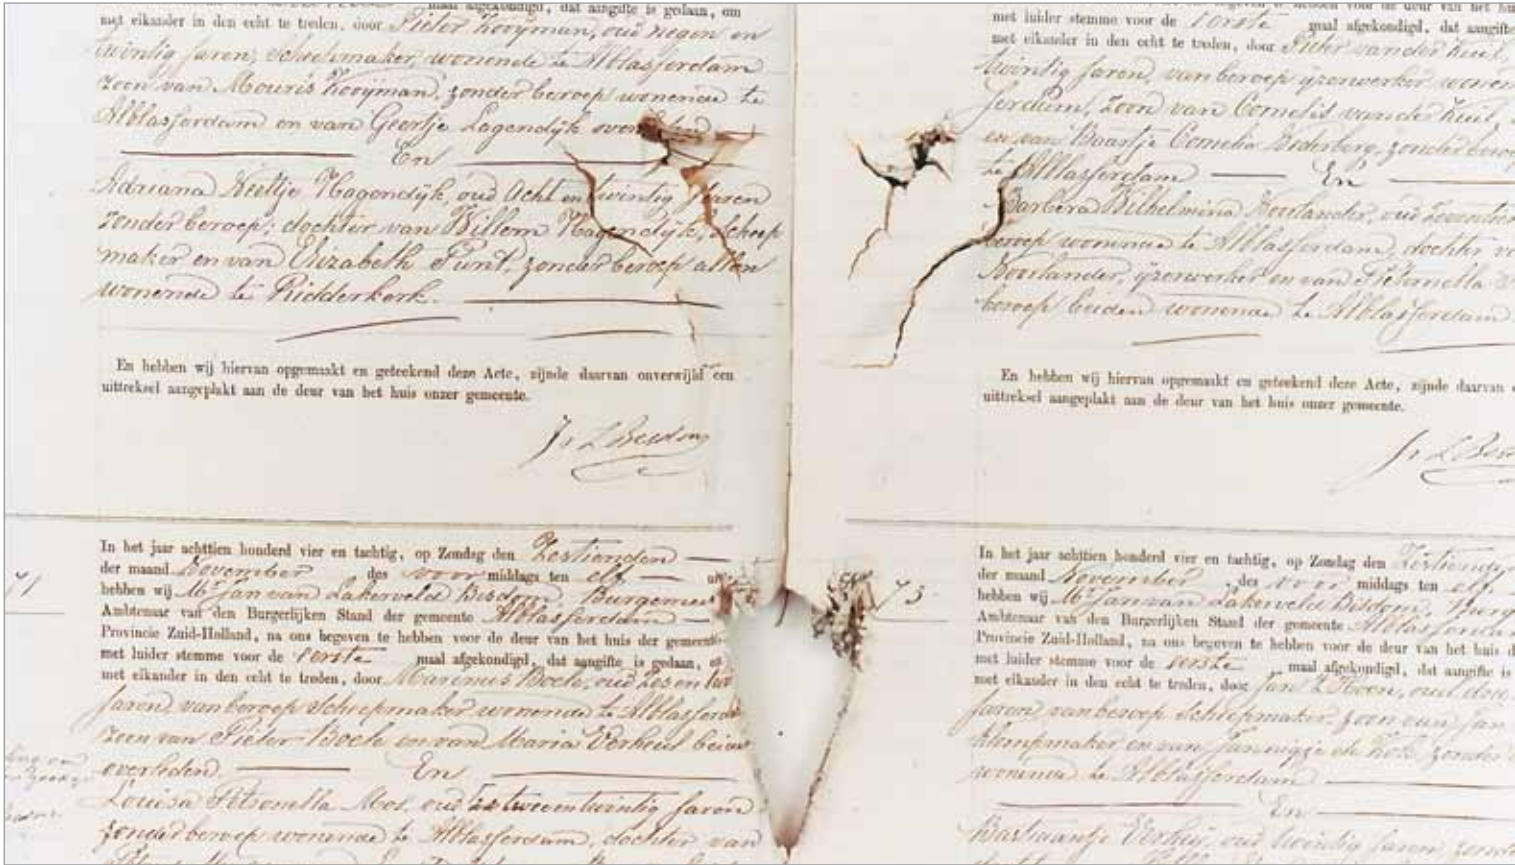 maal afgekondigd, dat aangifte is gedaan, om
met elkander in den echt te treden, door Pieter Kooijman, oud negen en
twintig Jaren, scheepmaker, wonende te Alblasserdam
zoon van Mouris Kooijman, zonder beroep wonende te
Alblasserdam en van Geertje Lagendijk overleden
En
Adriana Neeltje Hagendijk, oud Acht en twintig Jaren
zonder beroep; dochter van Willem Hagendijk, Scheep
maker en van Elizabeth Punt, zonder beroep allen
wonende te Ridderkerk.
En hebben wij hiervan opgemaakt en geteekend deze Acte, zijnde daarvan onverwijld een
uittreksel aangeplakt aan de deur van het huis onzer gemeente.
71
In het jaar achttien honderd vier en tachtig, op Zondag den Zestienden
der maand November des voor middags ten elf
hebben wij Mr Jan van Lakerveld Bisdom, Burgemees
Ambtenaar van den Burgerlijken Stand der gemeente Alblasserdam
Provincie Zuid-Holland, na ons begeven te hebben voor de deur van het huis der gemeente
met luider stemme voor de eerste maal afgekondigd, dat aangifte is gedaan,
met elkander in den echt te treden, door Marinus Boele, oud Zes en
Jaren, van beroep Scheepmaker wonende te
zoon van Pieter Boele en van Maria Verheul
overleden. En
Louisa Petronella Mos, oud twee en twintig Jaren
zonder beroep wonende te Alblasserdam, dochter van
met luider stemme voor de eerste maal afgekondigd, dat aangifte
met elkander in den echt te treden, door Pieter van der Kuil,
twintig Jaren, van beroep ijzerwerker
serdam, Zoon van Cornelis van der Kuil,
en van Baartje Cornelia
te Alblasserdam En
Barbera Wilhelmina
beroep wonende te Alblasserdam, dochter
ijzerwerker en van Pieternella
beroep beiden wonende te Alblasserdam
En hebben wij hiervan opgemaakt en geteekend deze Acte, zijnde daarvan
uittreksel aangeplakt aan de deur van het huis onzer gemeente.
73
In het jaar achttien honderd vier en tachtig, op Zondag den
der maand November, des voor middags ten elf
hebben wij Mr Jan van Lakerveld Bisdom,
Ambtenaar van den Burgerlijken Stand der gemeente
Provincie Zuid-Holland, na ons begeven te hebben voor de deur van het huis
met luider stemme voor de eerste maal afgekondigd, dat aangifte is
met elkander in den echt te treden, door Jan 't Hoen, oud drie
Jaren van beroep Scheepmaker, zoon van Jan
klompmaker en van Jannigje de Kok, zonder
wonende te Alblasserdam
En
Bastiaantje Verheij, oud twintig Jaren,